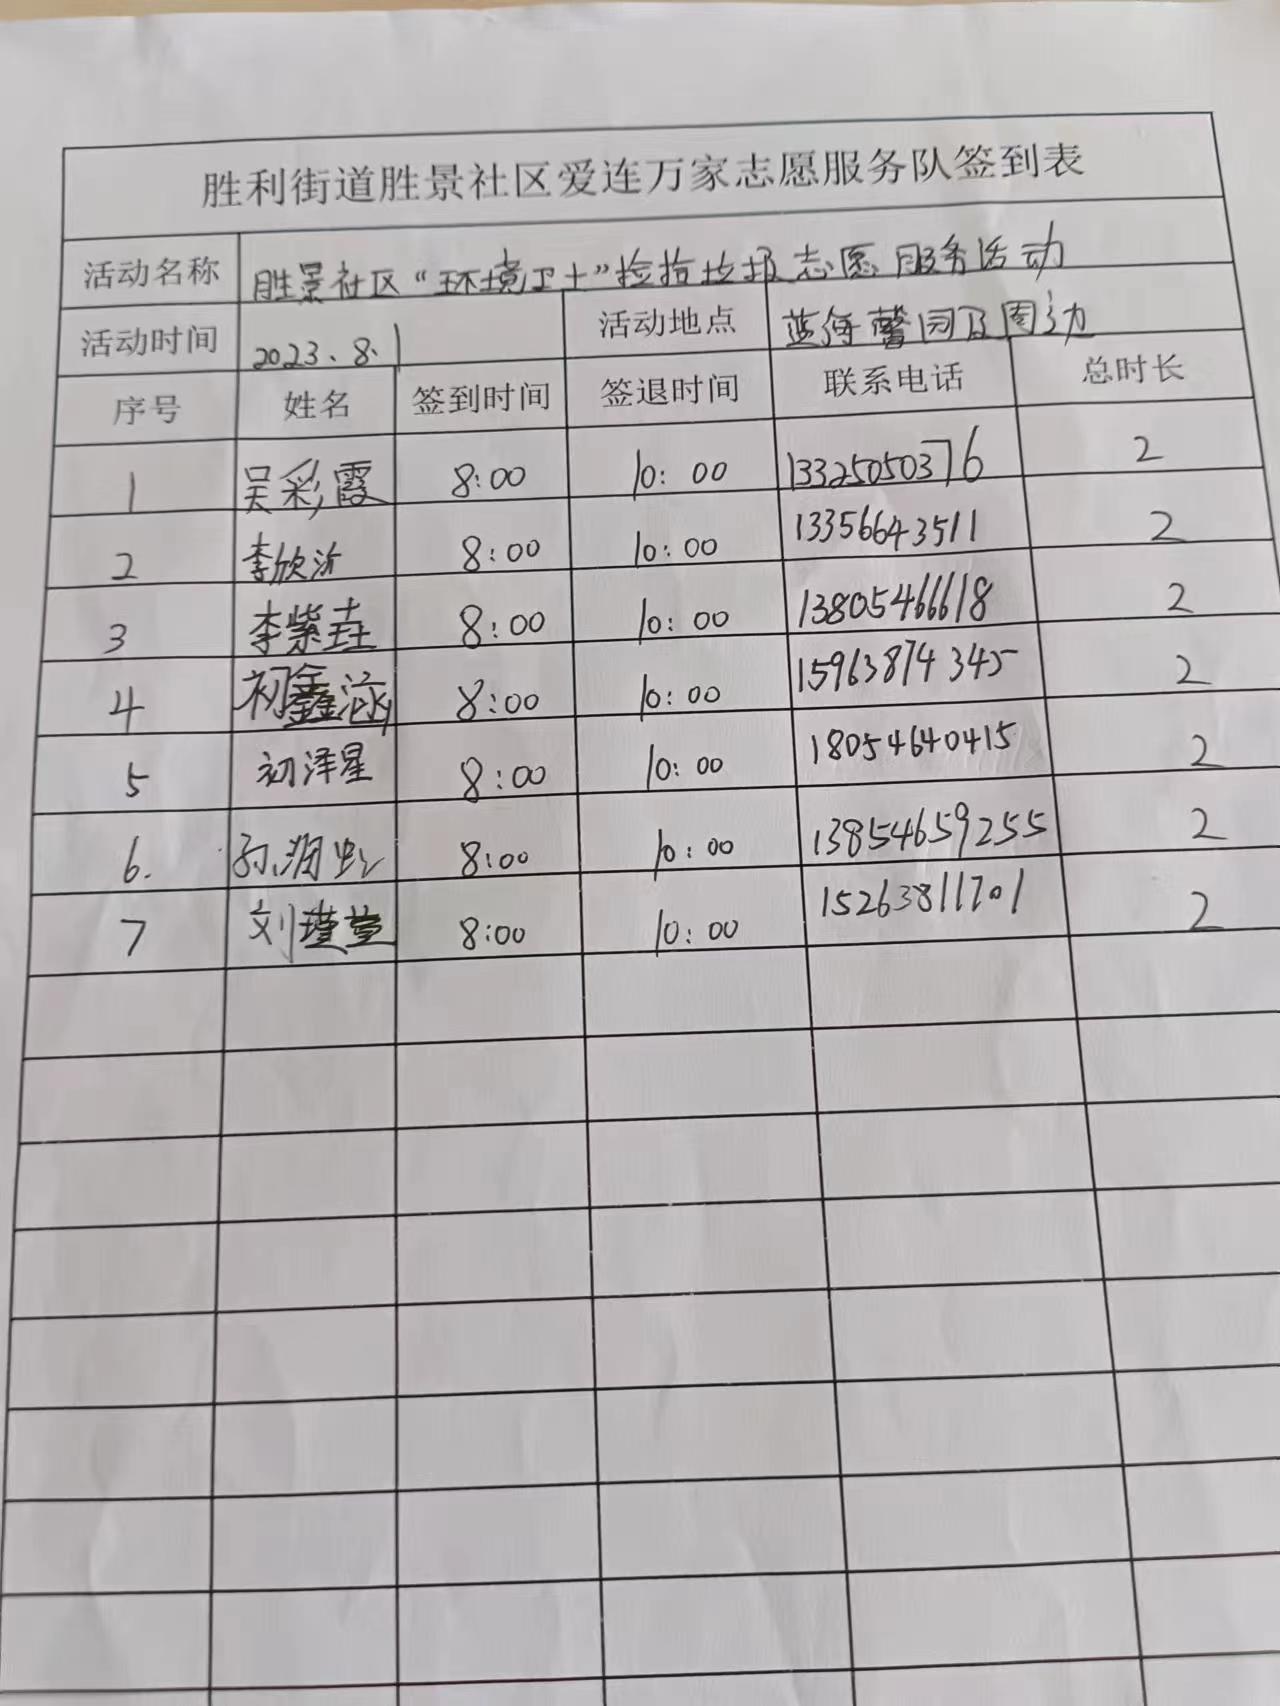 胜利街道胜景社区爱连万家志愿服务队签到表
活动名称 胜景社区“环境卫士”捡拾垃圾志愿服务活动
活动时间 2023.8.1 活动地点 蓝海馨园及周边
序号 姓名 签到时间 签退时间 联系电话 总时长
1 吴彩霞 8:00 10:00 13325050376 2
2 李欣沂 8:00 10:00 13356643511 2
3 李紫垚 8:00 10:00 13805466618 2
4 初鑫涵 8:00 10:00 15963874345 2
5 初泽星 8:00 10:00 18054640415 2
6. 孙润 8:00 10:00 13854659255 2
7 刘瑾萱 8:00 10:00 15263811701 2